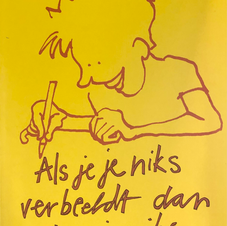 Als je je niks
verbeeldt dan